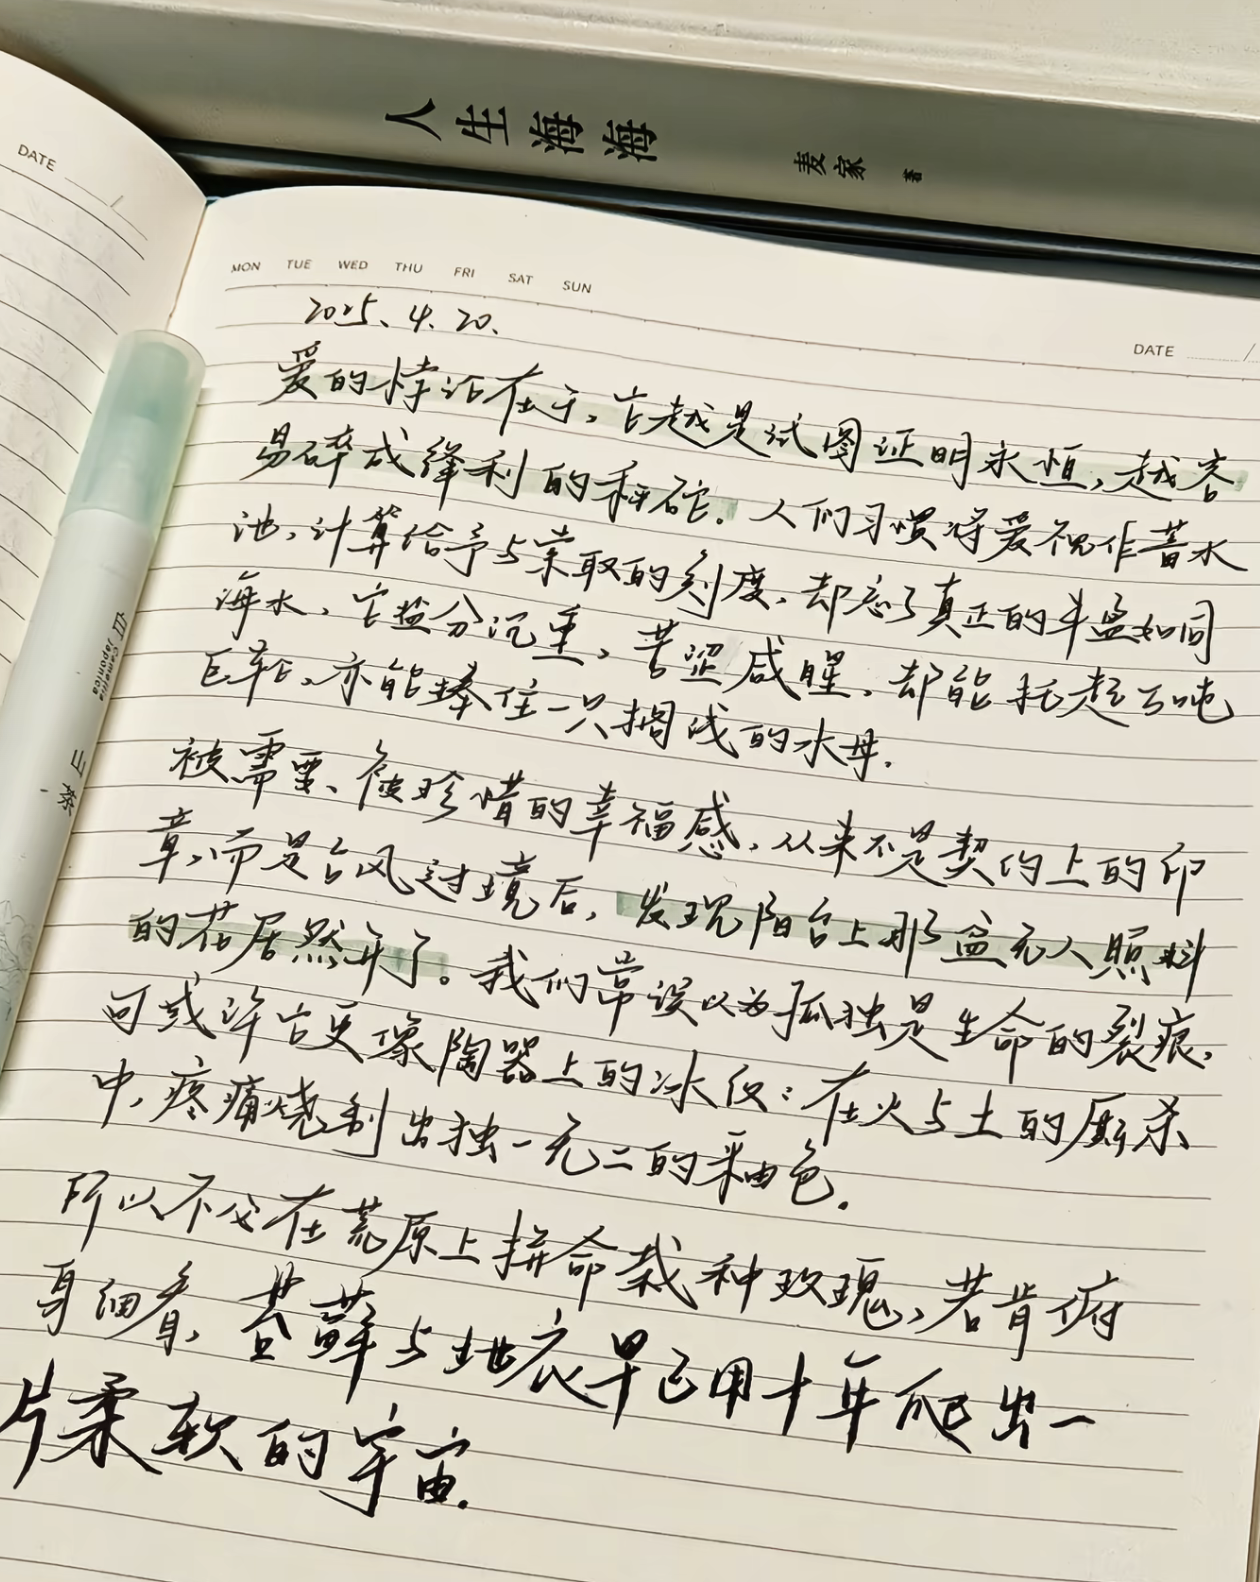 人生海海 麦家 著
DATE
MON TUE WED THU FRI SAT SUN
DATE
2025.4.20.
爱的悖论在于,它越是试图证明永恒,越容
易碎成锋利的秤砣。人们习惯将爱视作蓄水
池,计算给予与索取的刻度,却忘了真正的丰盈如同
海水,它盐分沉重,苦涩咸腥,却能托起万吨
巨轮,亦能捧住一只搁浅的水母.
被需要、被珍惜的幸福感,从来不是契约上的印
章,而是台风过境后,发现阳台上那盆无人照料
的花居然开了。我们常误以为孤独是生命的裂痕,
可或许它更像陶器上的冰纹:在火与土的厮杀
中,疼痛烧制出独一无二的釉色.
所以不必在荒原上拼命栽种玫瑰,若肯俯
身细看,苔藓与地衣早已用十年爬出一
片柔软的宇宙.
红山茶
Camellia
Japonica